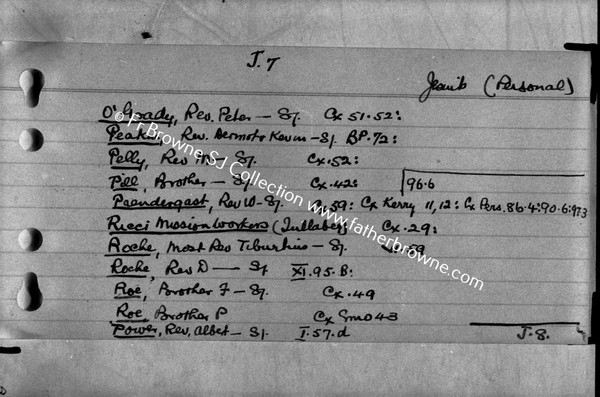 J.7
Jesuits (Personal)
O'Grady, Rev. Peter — SJ. Cx 51.52:
Peakin, Rev. Dermot Kevin — SJ. BP.72:
Pelly, Rev — SJ. Cx.52:
Pill, Brother — SJ. Cx.42: 96.6
Prendergast, Rev W — SJ. Cx.59: Cx Kerry 11,12: Cx Pers. 86.4: 90.6: 97.3
Ricci Mission Workers (Tullabeg) Cx.29:
Roche, Most Rev Tiburtius — SJ. 59
Roche, Rev D — SJ XI.95.B:
Roe, Brother F — SJ. Cx.49
Roe, Brother P Cx 43
Power, Rev. Albert — SJ. I.57.d
J.8.
© Fr Browne SJ Collection www.fatherbrowne.com